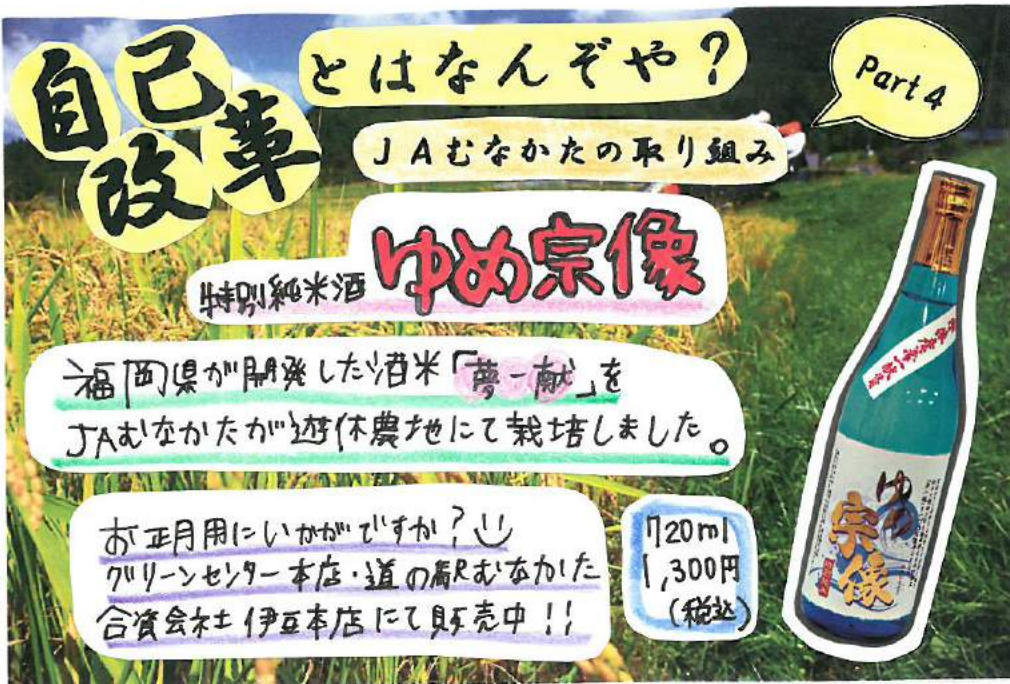 自己改革
とはなんぞや?
Part4
JAむなかたの取り組み
特別純米酒 ゆめ宗像
福岡県が開発した酒米「夢一献」を
JAむなかたが遊休農地にて栽培しました。
お正月用にいかがですか?
グリーンセンター本店・道の駅むなかた
合資会社 伊豆本店にて販売中!!
720ml
1,300円
(税込)
ゆめ
宗像